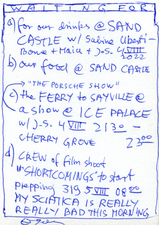 WAITING FOR
a) for our drinks @ SAND
CASTLE w/ Sabina Ubati-
Bona + Maia + J.S. 4 VIII
2022
b) our food @ SAND CASTLE
"THE PORSCHE SHOW"
c) the FERRY to SAYVILLE @
a show @ ICE PALACE
w/ J.S. 4 VIII 21 30 –
CHERRY GROVE 23 00
d) CREW of film shoot
"SHORTCOMINGS" to start
prepping 319 5 VIII 08 00
MY SCIATICA IS REALLY
REALLY BAD THIS MORNING